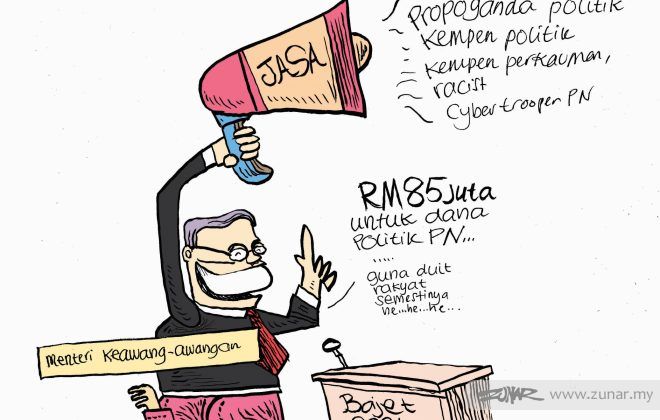 Propoganda politik
Kempen politik
Kempen perkauman,
racist
Cybertrooper PN
JASA
RM85 Juta
untuk dana
politik PN...
.....
guna duit
rakyat
semestinya
he...he...he...
menteri Keawang-awangan
Bajet
ZUNAR
www.zunar.my